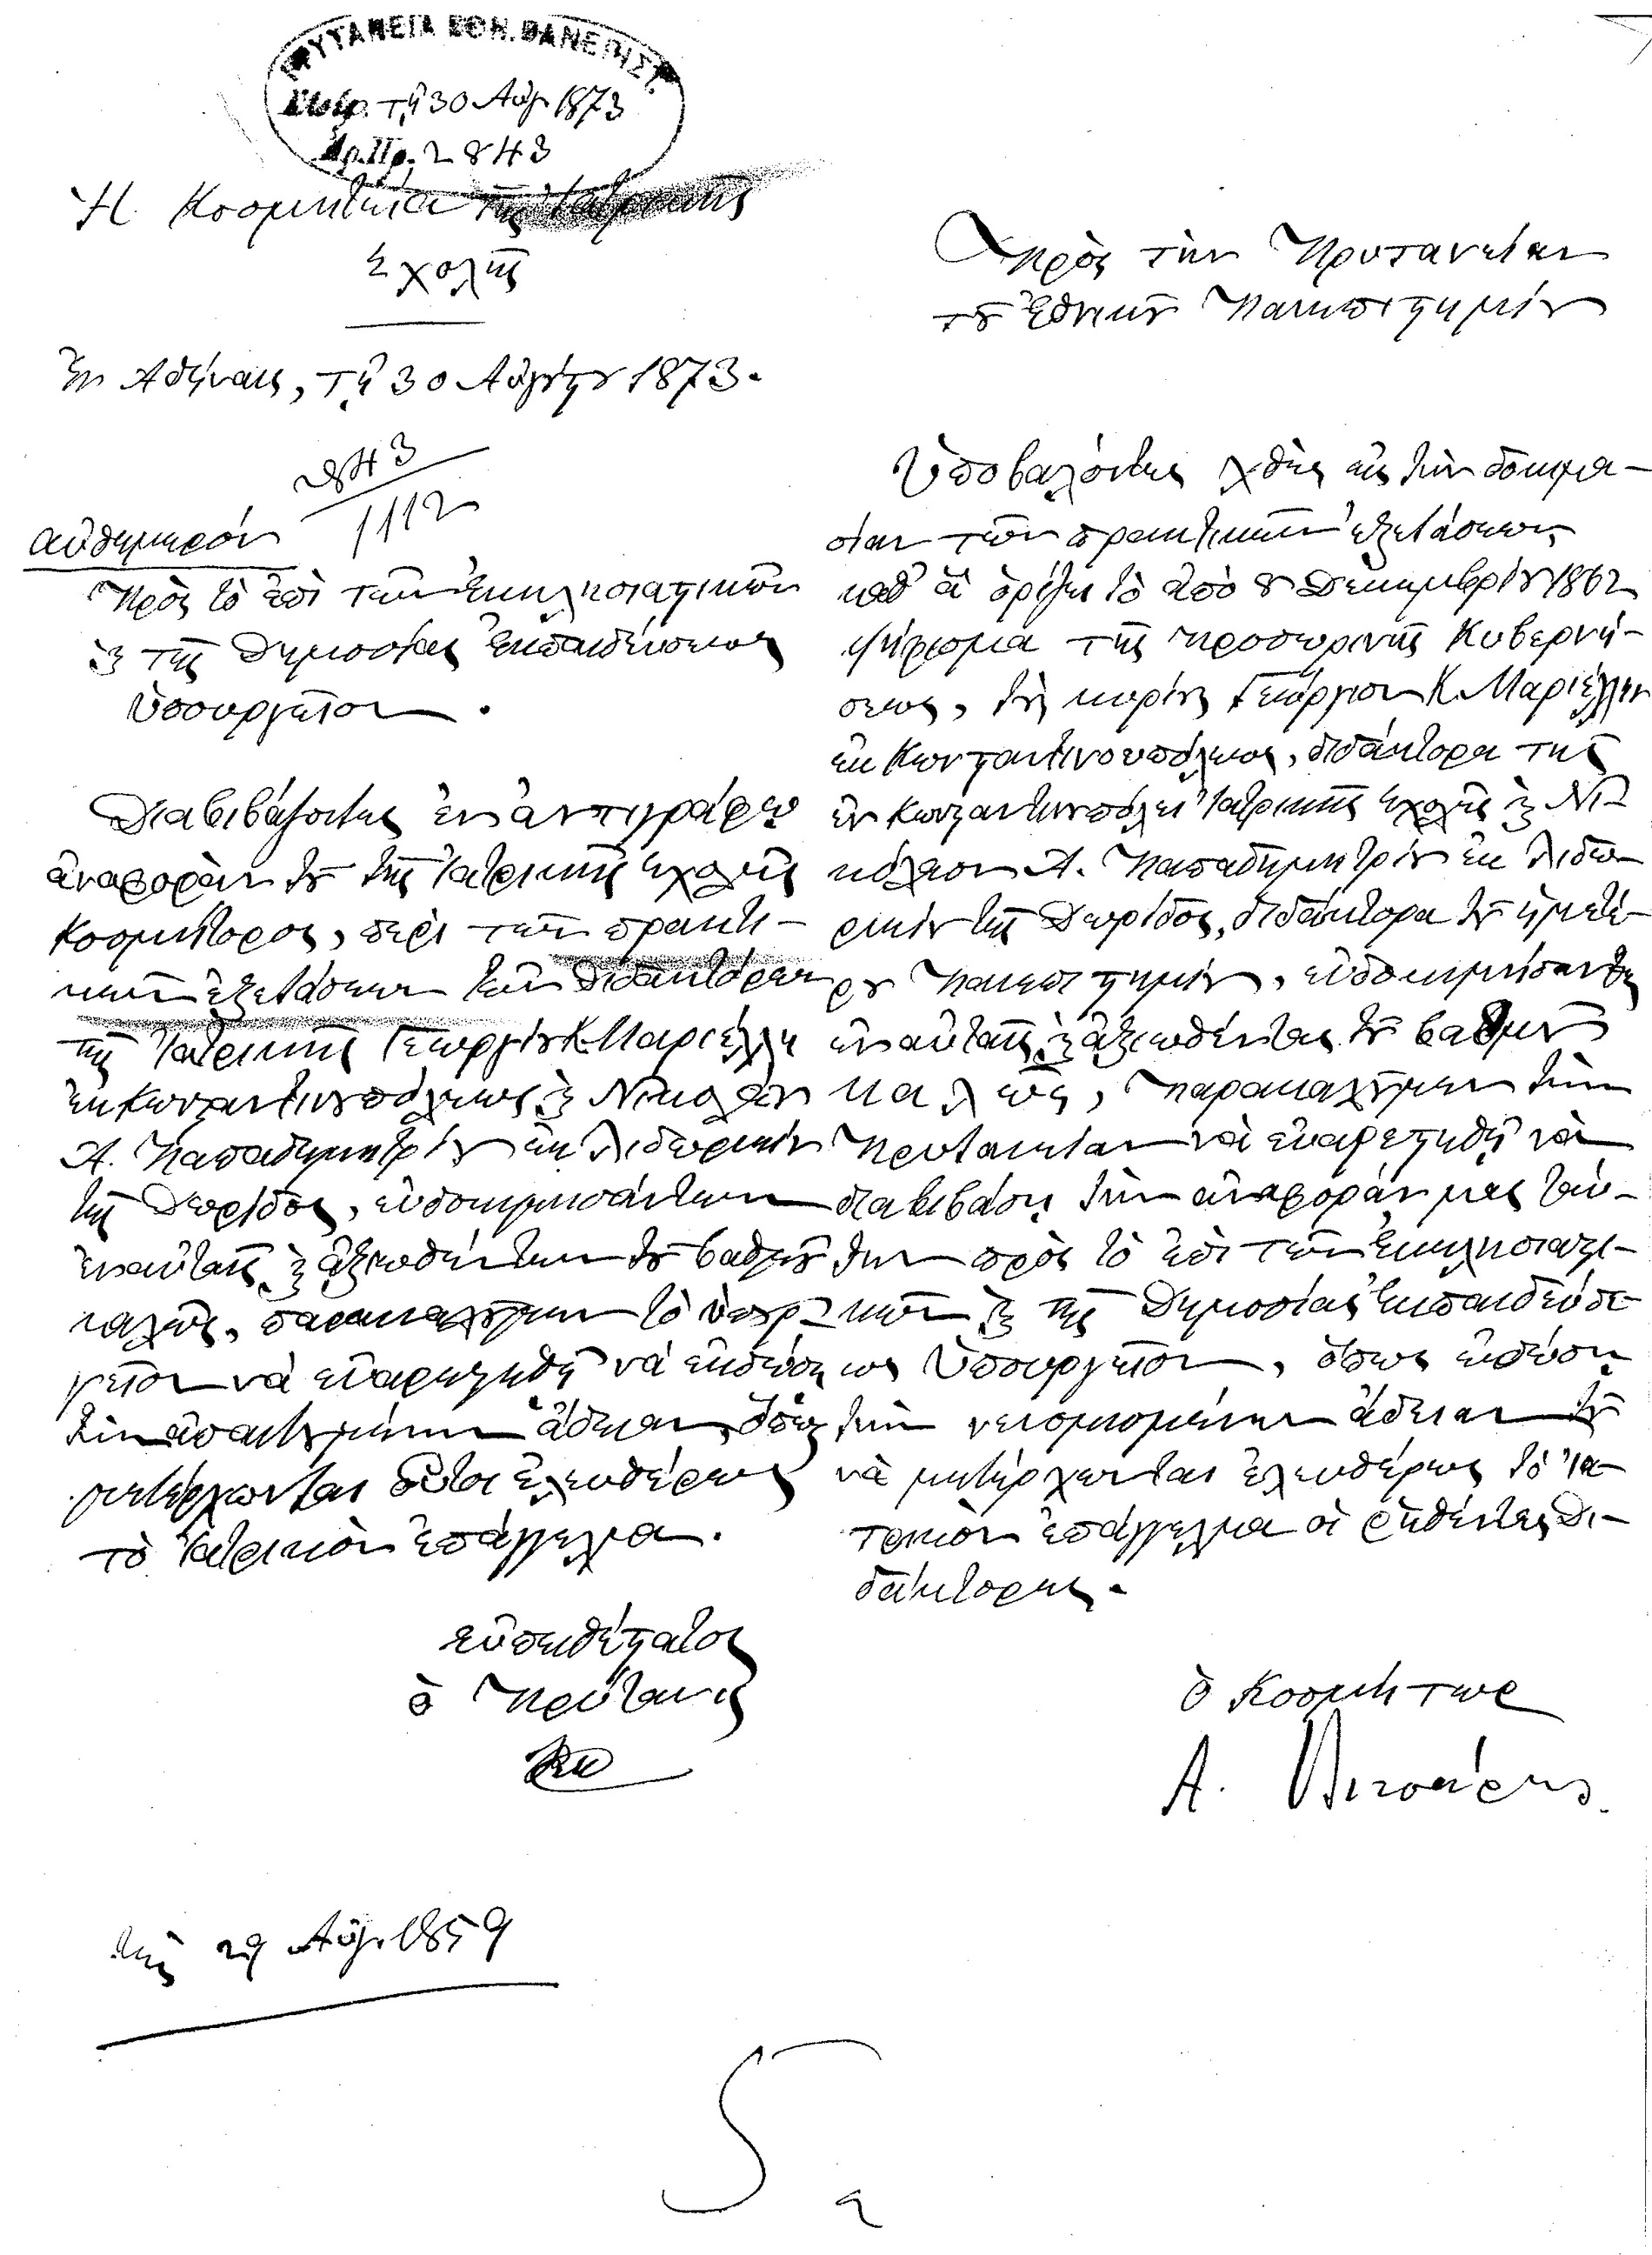 ΠΡΥΤΑΝΕΙΑ ΕΘΝ. ΠΑΝΕΠΙΣΤ.
τῇ 30 Αὐγ 1873
Ἀρ. Πρ. 2843
Ἡ Κοσμητεία τῆς Ἰατρικῆς
Σχολῆς
Ἐν Ἀθήναις, τῇ 30 Αὐγούστου 1873.
2843
1112
αὐθημερόν
Πρὸς τὸ ἐπὶ τῶν Ἐκκλησιαστικῶν
καὶ τῆς Δημοσίας Ἐκπαιδεύσεως
Ὑπουργεῖον.
Διαβιβάζοντες ἐν ἀντιγράφῳ
ἀναφορὰν τοῦ τῆς Ἰατρικῆς Σχολῆς
Κοσμήτορος, περὶ τῶν πρακτι-
κῶν ἐξετάσεων τῶν Διδακτόρων
τῆς Ἰατρικῆς Γεωργίου Κ. Μαριέλλη
ἐκ Κωνσταντινουπόλεως καὶ Νικολάου
Α. Παπαδημητρίου ἐκ Λιδωρικίου
τῆς Δωρίδος, εὐδοκιμησάντων
ἐν αὐταῖς καὶ ἀξιωθέντων τοῦ βαθμοῦ
καλῶς, παρακαλοῦμεν τὸ ὑπουρ-
γεῖον νὰ εὐαρεστηθῇ νὰ ἐκδώσῃ
τὴν ἀπαιτουμένην ἄδειαν, ὅπως
μετέρχωνται οὗτοι ἐλευθέρως
τὸ Ἰατρικὸν ἐπάγγελμα.
εὐπειθέστατος
ὁ Πρύτανις
τῆς 29 Αὐγ. 1859
Πρὸς τὴν Πρυτανείαν
τοῦ Ἐθνικοῦ Πανεπιστημίου
Ὑποβαλόντες χθὲς εἰς τὴν δοκιμα-
σίαν τῶν πρακτικῶν ἐξετάσεων,
καθ' ἃ ὁρίζει τὸ ἀπὸ 8 Δεκεμβρίου 1862
ψήφισμα τῆς προσωρινῆς Κυβερνή-
σεως, τοὺς κυρίους Γεώργιον Κ. Μαριέλλην
ἐκ Κωνσταντινουπόλεως, διδάκτορα τῆς
ἐν Κωνσταντινουπόλει Ἰατρικῆς Σχολῆς καὶ Νι-
κόλαον Α. Παπαδημητρίου ἐκ Λιδω-
ρικίου τῆς Δωρίδος, διδάκτορα τοῦ ἡμετέ-
ρου Πανεπιστημίου, εὐδοκιμήσαντας
ἐν αὐταῖς καὶ ἀξιωθέντας τοῦ βαθμοῦ
καλῶς, παρακαλοῦμεν τὴν
Πρυτανείαν νὰ εὐαρεστηθῇ νὰ
διαβιβάσῃ τὴν ἀναφοράν μας ταύ-
την πρὸς τὸ ἐπὶ τῶν Ἐκκλησιαστι-
κῶν καὶ τῆς Δημοσίας Ἐκπαιδεύσε-
ως Ὑπουργεῖον, ὅπως ἐκδώσῃ
τὴν νενομισμένην ἄδειαν τοῦ
νὰ μετέρχωνται ἐλευθέρως τὸ Ἰα-
τρικὸν ἐπάγγελμα οἱ ῥηθέντες Δι-
δάκτορες.
ὁ Κοσμήτωρ
Α.